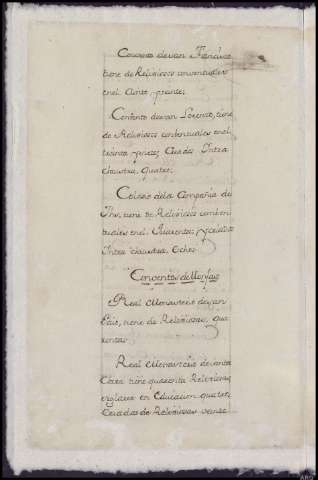 Convento de san Francisco
tiene de Religiosos conventuales
en el
Convento de san Lorenzo, tiene
de Religiosos conventuales en el
treinta y siete; Criados Intra
claustra, quatro;
Colegio de la Compañia de
Jhs, tiene de Religiosos conven
tuales en el Quarenta;
Intra claustra, Ocho;
Conventos de Monjas
Real Monasterio de san
tiene de Religiosas, qua
renta;
Real Monasterio de santa
Clara tiene quarenta Religiosas,
seglares en Educacion quatro;
Criadas de Religiosas veinte